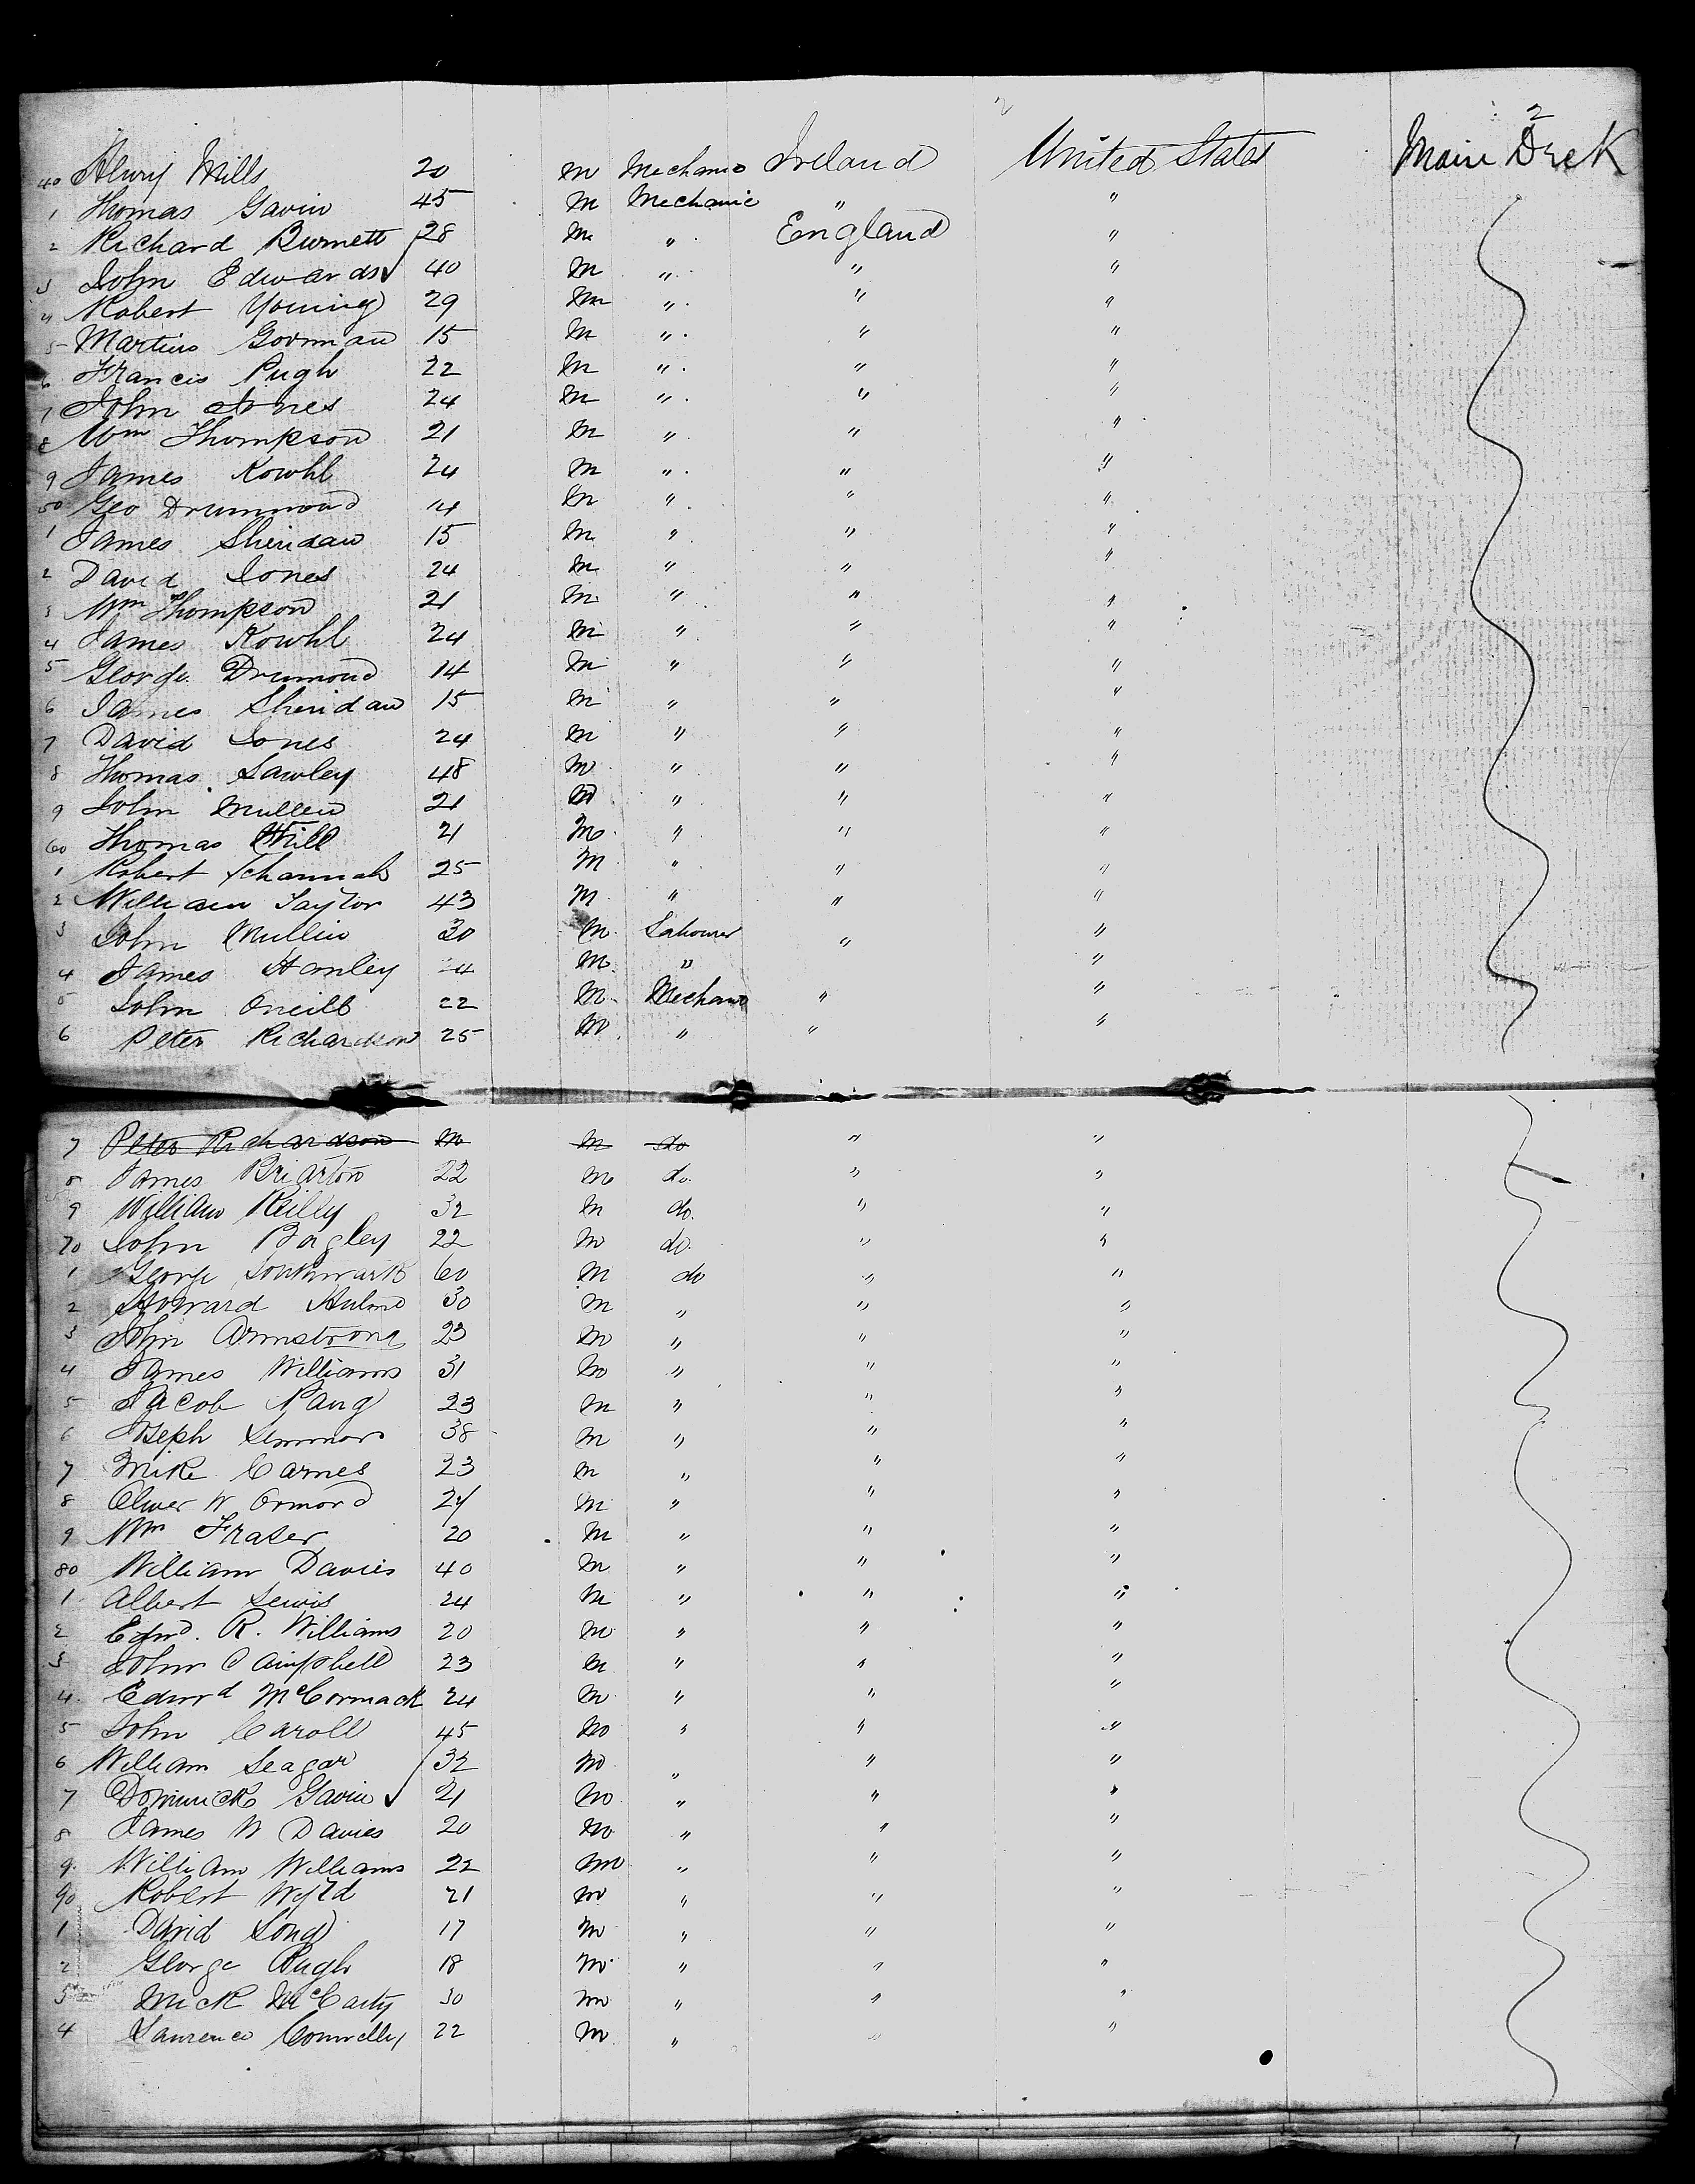 2
40 Henry Mills 20 m Mechanic Ireland United States Main Deck
1 Thomas Gavin 45 M Mechanic " "
2 Richard Burnett 28 m " England "
3 John Edwards 40 m " " "
4 Robert Young 29 m " " "
5 Martin Gorman 15 m " " "
6 Francis Pugh 22 m " " "
7 John Jones 24 m " " "
8 Wm Thompson 21 m " " "
9 James Kowhl 24 m " " "
50 Geo Drummond 14 m " " "
1 James Sheridan 15 m " " "
2 David Jones 24 m " " "
3 Wm Thompson 21 m " " "
4 James Kowhl 24 m " " "
5 George Drumond 14 m " " "
6 James Sheridan 15 m " " "
7 David Jones 24 m " " "
8 Thomas Lawley 48 m " " "
9 John Mullen 21 m " " "
60 Thomas Will 21 m " " "
1 Robert 25 M " " "
2 William Taylor 43 M " " "
3 John Mullin 30 m Labourer " "
4 James Hanley m " "
5 John Oneill 22 M Mechanic " "
6 Peter Richardson 25 m " " "
7 Peter Richardson m m do " "
8 James Briarton 22 m do " "
9 William Reilly 32 m do. " "
70 John Bagley 22 m do. " "
1 George Southwark 60 m do " "
2 Howard Hulme 30 m " " "
3 John Armstrong 23 m " " "
4 James Williams 31 m " " "
5 Jacob 23 m " " "
6 Joseph 38 m " " "
7 Mike Carnes 23 m " " "
8 Oliver W Ormond m " " "
9 Wm Fraser 20 m " " "
80 William Davies 40 m " " "
1 Albert Lewis 24 m " " "
2 Edwd. R. Williams 20 m " " "
3 John Campbell 23 m " " "
4 Edwrd McCormack 24 m " " "
5 John Caroll 45 m " " "
6 William Seagar 32 m " " "
7 Dominick Gavin 21 m " " "
8 James W Davies 20 m " " "
9 William Williams 22 m " " "
90 Robert Wyld 21 m " " "
1 David Long 17 m " " "
2 George Pugh 18 m " " "
3 Mick McCarty 30 m " " "
4 Laurence Connelly 22 m " " "